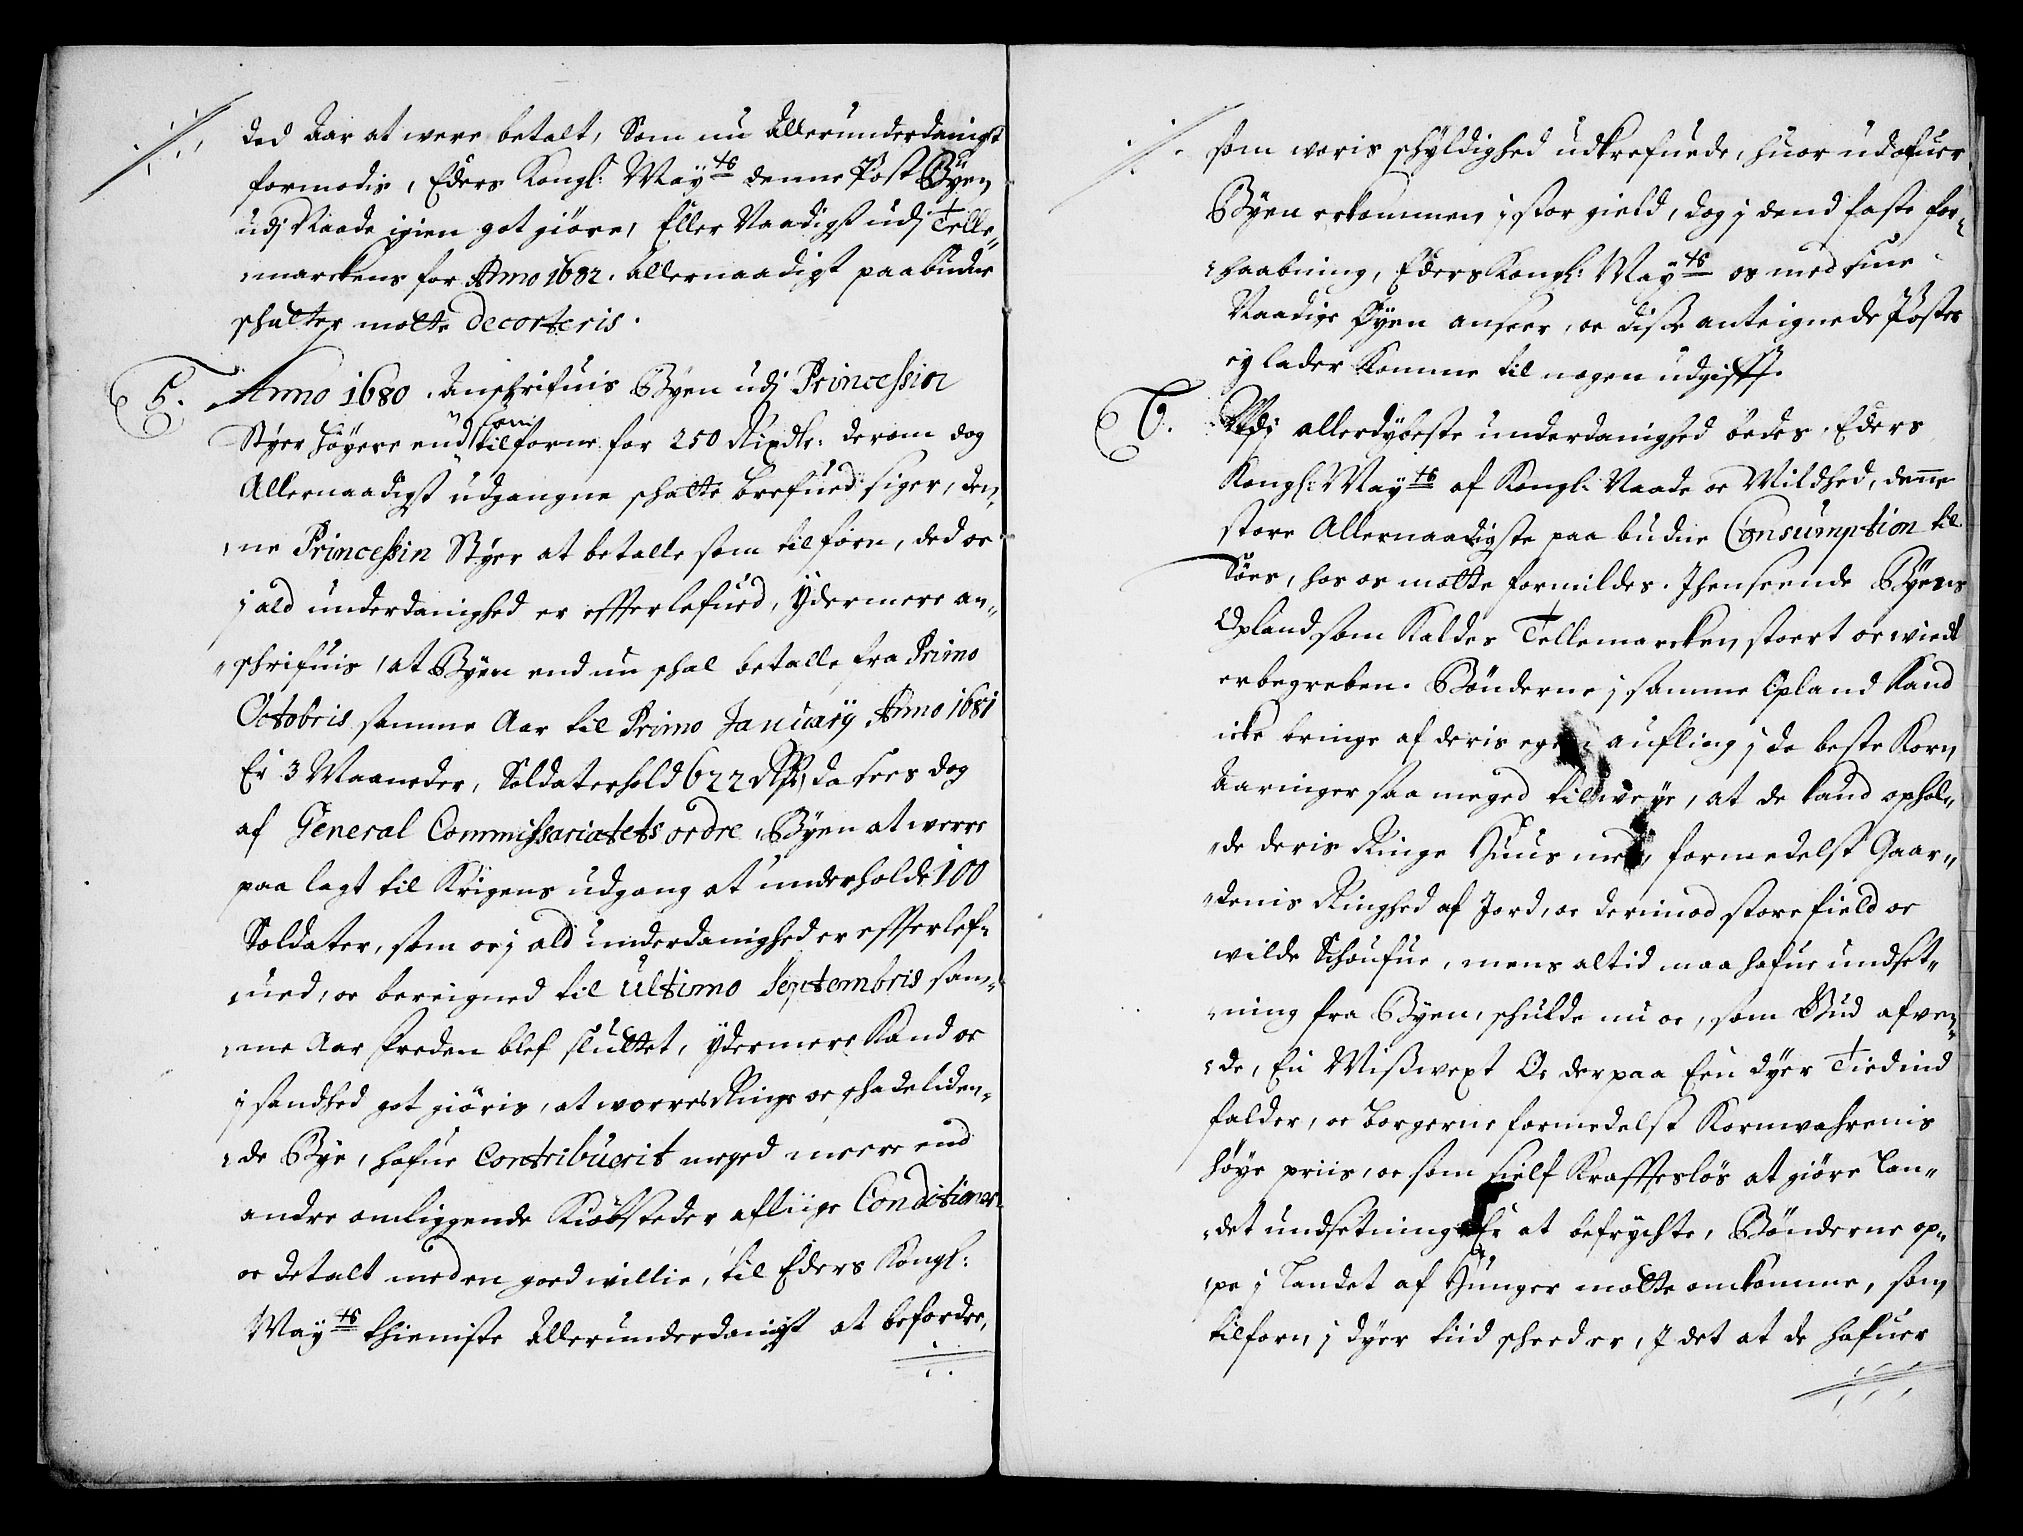 ded Aar at were betalt, Som nu Allerunderdanigst
formodis, Eders Kongl: Maÿts denne Post Bÿen
udj Naade igien got giöre, Eller Naadigst udj Telle„
„marckens for Anno 1682. Allernaadigst paabudne
schatter motte decorteris.
5. Anno 1680. Anschrifuis Bÿen udj Princessin
Stÿer höÿere end som tilforne for 250 Rixdlr: derom dog
Allernaadigst udgangne schatte brefued siger, den„
„ne Princessin Stÿer at betalle som tilforn, ded oc
j ald underdanighed er efterlefued, Ydermere an„
„schrifuis, at Bÿen end nu schal betalle fra Primo
Octobris samme Aar til Primo Januarÿ Anno 1681
Er 3 Maaneder, Soldaterhold 622 Rdr, da sees dog
af General Commissariatets ordre, Bÿen at werre
paa lagt til Krigens udgang at underholde 100
Soldater, som oc j ald underdanighed er efterlef„
„ued, oc bereigned til ultimo Septembris sam„
„me Aar freden blef sluttet, ydermere Kand oc
j sandhed got giöris, at worres Ringe oc schadeliden„
„de Bÿe, hafue Contribuerit meged meere end
andre omliggende Kiöbsteder af liige Conditioner
oc betalt med en goed willie, til Eders Kongl:
Maÿts thieniste Allerunderdanigst at befordre,
som woris schÿldighed udkrefuede, huor udofuer
Bÿen er kommen j stor gield, dog j dend faste for„
„haabning, Eders Kongl: Maÿts os med sine
Naadige Øÿen anseer, oc disse anteignede Poster
ej lader komme til nogen udgifft.
6. Udj allerdÿbeste underdanighed bedes. Eders
Kongl: Maÿts af Kongl: Naade oc Mildhed, denne
store Allernaadigste paa budne Consumption til
Söes, hos os motte formildes. J henseende Bÿens
Opland som Kaldes Tellemarcken, stoert oc wiedt
er begreben. Bönderne j samme Opland Kand
icke bringe af deris egen aufling j de beste Korn
Aaringer saa meged tillweÿe, at de kand ophol„
„de deris Ringe Huus med, formedelst Gaar„
„denis Ringhed af Jord, oc derimod store field oc
wilde Schoufue, mens altid maa hafue undset„
„ning fra Bÿen, schulde nu oc, som Gud afven„
„de, En Misswext Oc derpaa Een dÿer Tiedind
falder, oc borgerne formedelst Kornwahrenis
höÿe priis, oc som sielf Krafftesløs at giöre lan„
„det undsetning Er at befrÿchte, Bönderne op„
„pe j Landet af Hunger motte omkomme, som
tilforn j dÿer tiid scheed er, J det at de hafuer